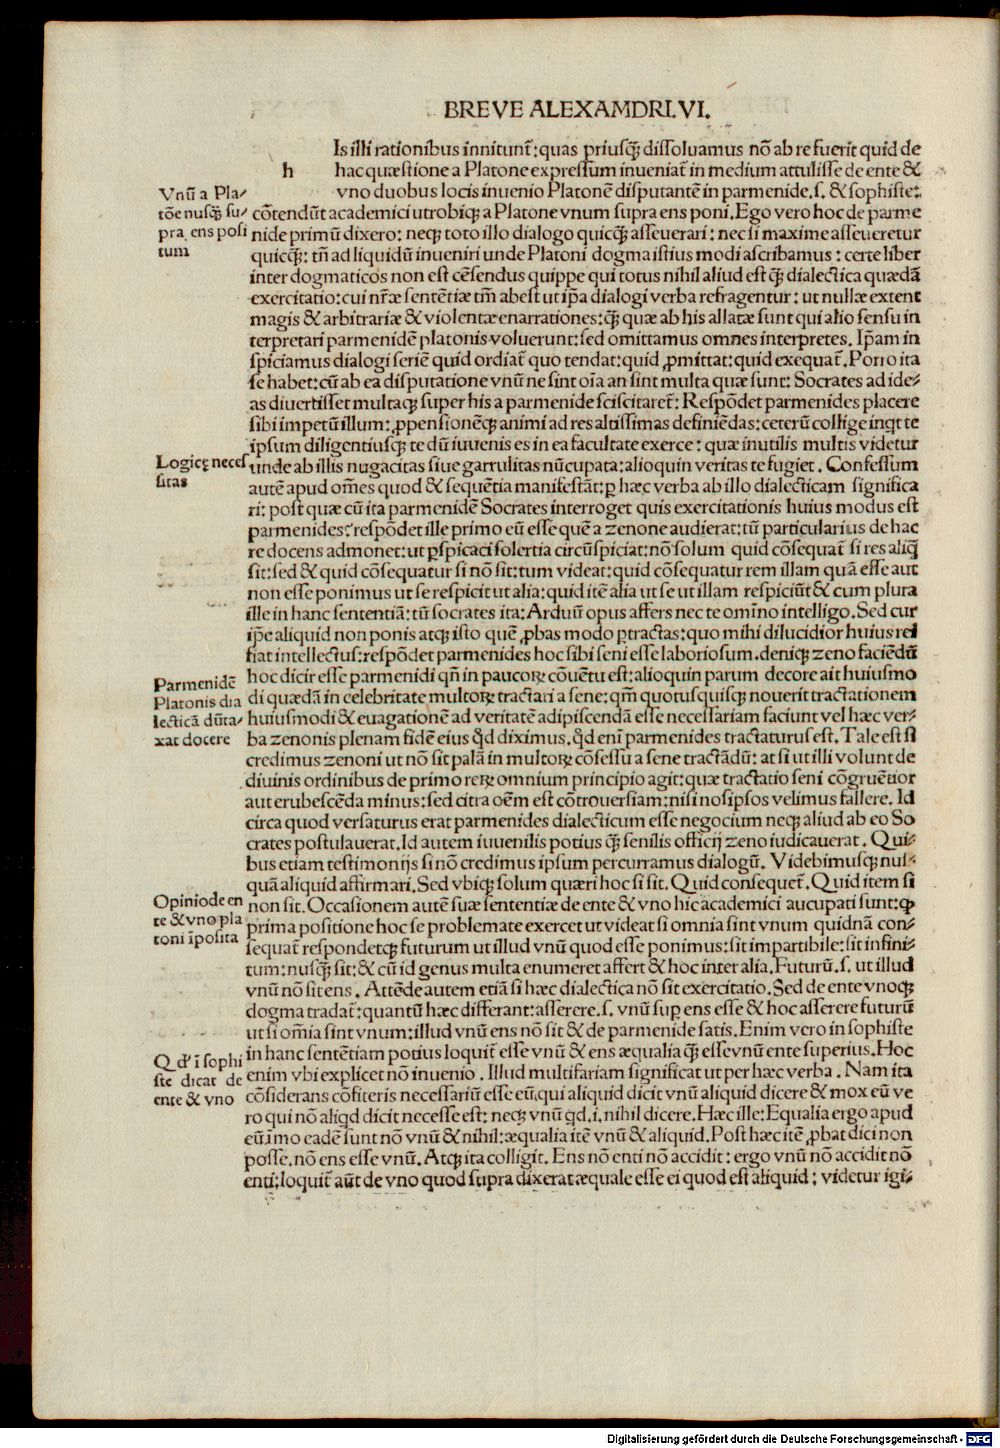 BREVE ALEXAMDRI.VI.
Is illi rationibus innitunt᷑: quas priusq̃ dissoluamus nõ ab re fuerit quid de
h
hac quæstione a Platone expressum inueniat᷑ in medium attulisse de ente &
vno duobus locis inuenio Platonẽ disputantẽ in parmenide.s. & sophiste:
cõtendũt academici utrobiqȝ a Platone vnum supra ens poni. Ego vero hoc de parme
nide primũ dixero: neqȝ toto illo dialogo quicq̃ asseuerari: nec si maxime asseueretur
quicq̃: tñ ad liquidũ inueniri unde Platoni dogma istius modi ascribamus: certe liber
inter dogmaticos non est cẽsendus quippe qui totus nihil aliud est q̃ dialectica quædã
exercitatio: cui nr̃æ sentẽtiæ tm̃ abest ut ip̃a dialogi verba refragentur: ut nullæ extent
magis & arbitrariæ & violentæ enarrationes: q̃ quæ ab his allatæ sunt qui alio sensu in
terpretari parmenidẽ platonis voluerunt: sed omittamus omnes interpretes. Ip̃am in
spiciamus dialogi seriẽ quid ordiat᷑ quo tendat: quid ꝓmittat: quid exequat᷑. Porro ita
se habet: cũ ab ea disputatione vnũ ne sint oĩa an sint multa quæ sunt: Socrates ad ide⸗
as diuertisset multaqȝ super his a parmenide sciscitaret᷑: Respõdet parmenides placere
sibi impetũ illum: ꝓpensionẽqȝ animi ad res altissimas definiẽdas: ceterũ collige inqt te
ipsum diligentiusqȝ te dũ iuuenis es in ea facultate exerce: quæ inutilis multis videtur
unde ab illis nugacitas siue garrulitas nũcupata: alioquin veritas te fugiet. Confessum
autẽ apud om̃es quod & sequẽtia manifestãt: ꝑ hæc verba ab illo dialecticam significa
ri: post quæ cũ ita parmenidẽ Socrates interroget quis exercitationis huius modus est
parmenides: respõdet ille primo eũ esse quẽ a zenone audierat: tũ particularius de hac
re docens admonet: ut ꝑspicaci solertia circũspiciat: nõ solum quid cõsequat᷑ si res aliq̃
sit: sed & quid cõsequatur si nõ sit: tum videat: quid cõsequatur rem illam quã esse aut
non esse ponimus ut se respicit ut alia: quid itẽ alia ut se ut illam respiciũt & cum plura
ille in hanc sententiã: tũ socrates ita: Arduũ opus affers nec te omĩno intelligo. Sed cur
ip̃e aliquid non ponis atqȝ isto quẽ ꝓbas modo ꝑtractas: quo mihi dilucidior huius rei
fiat intellectus: respõdet parmenides hoc sibi seni esse laboriosum. deniqȝ zeno faciẽdũ
hoc dicit esse parmenidi qñ in paucoꝝ cõuẽtu est: alioquin parum decore ait huiusmo
di quædã in celebritate multoꝝ tractari a sene: qm̃ quotusquisqȝ nouerit tractationem
huiusmodi & euagationẽ ad veritatẽ adipiscendã esse necessariam faciunt vel hæc ver⸗
ba zenonis plenam fidẽ eius qd̃ diximus. qd̃ enĩ parmenides tractaturus est. Tale est si
credimus zenoni ut nõ sit palã in multoꝝ cõsessu a sene tractãdũ: at si ut illi volunt de
diuinis ordinibus de primo reꝝ omnium principio agit: quæ tractatio seni cõgruẽtior
aut erubescẽda minus: sed citra oẽm est cõtrouersiam: nisi nosipsos velimus fallere. Id
circa quod versaturus erat parmenides dialecticum esse negocium neqȝ aliud ab eo So
crates postulauerat. Id autem iuuenilis potius q̃ senilis officij zeno iudicauerat. Qui⸗
bus etiam testimonijs si nõ credimus ipsum percurramus dialogũ. Videbimusqȝ nus⸗
quã aliquid affirmari. Sed vbiqȝ solum quæri hoc si sit. Quid consequet᷑. Quid item si
non sit. Occasionem autẽ suæ sententiæ de ente & vno hic academici aucupati sunt: ꝙ
prima positione hoc se problemate exercet ut videat si omnia sint vnum quidnã con⸗
sequat᷑ respondetqȝ futurum ut illud vnũ quod esse ponimus: sit impartibile: sit infini⸗
tum: nusq̃ sit: & cũ id genus multa enumeret affert & hoc inter alia. Futurũ.s. ut illud
vnũ nõ sit ens. Attẽde autem etiã si hæc dialectica nõ sit exercitatio. Sed de ente vnoqȝ
dogma tradat᷑: quantũ hæc differant: asserere.s. vnũ suꝑ ens esse & hoc asserere futurũ
ut si om̃ia sint vnum: illud vnũ ens nõ sit & de parmenide satis. Enim vero in sophiste
in hanc sentẽtiam potius loquit᷑ esse vnũ & ens æqualia q̃ esse vnũ ente superius. Hoc
enim vbi explicet nõ inuenio. Illud multifariam significat ut per hæc verba. Nam ita
cõsiderans cõfiteris necessariũ esse eũ, qui aliquid dicit vnũ aliquid dicere & mox eũ ve
ro qui nõ aliqd dicit necesse est: neqȝ vnũ qd.i. nihil dicere. Hæc ille: Equalia ergo apud
eũ, imo eadẽ sunt nõ vnũ & nihil: æqualia itẽ vnũ & aliquid. Post hæc itẽ ꝓbat dici non
posse. nõ ens esse vnũ. Atqȝ ita colligit. Ens nõ enti nõ accidit: ergo vnũ nõ accidit nõ
enti; loquit᷑ aũt de vno quod supra dixerat æquale esse ei quod est aliquid; videtur igi⸗
Vnũ a Pla⸗
tõe nusq̃ su⸗
pra ens posi
tum
Logicę neces
sitas
Parmenidẽ
Platonis dia
lecticã dũta⸗
xat docere
Opinio de en
te & vno pla
toni ĩposita
Qd̃ ĩ sophi
ste dicat de
ente & vno
Digitalisierung gefördert durch die Deutsche Forschungsgemeinschaft - DFG